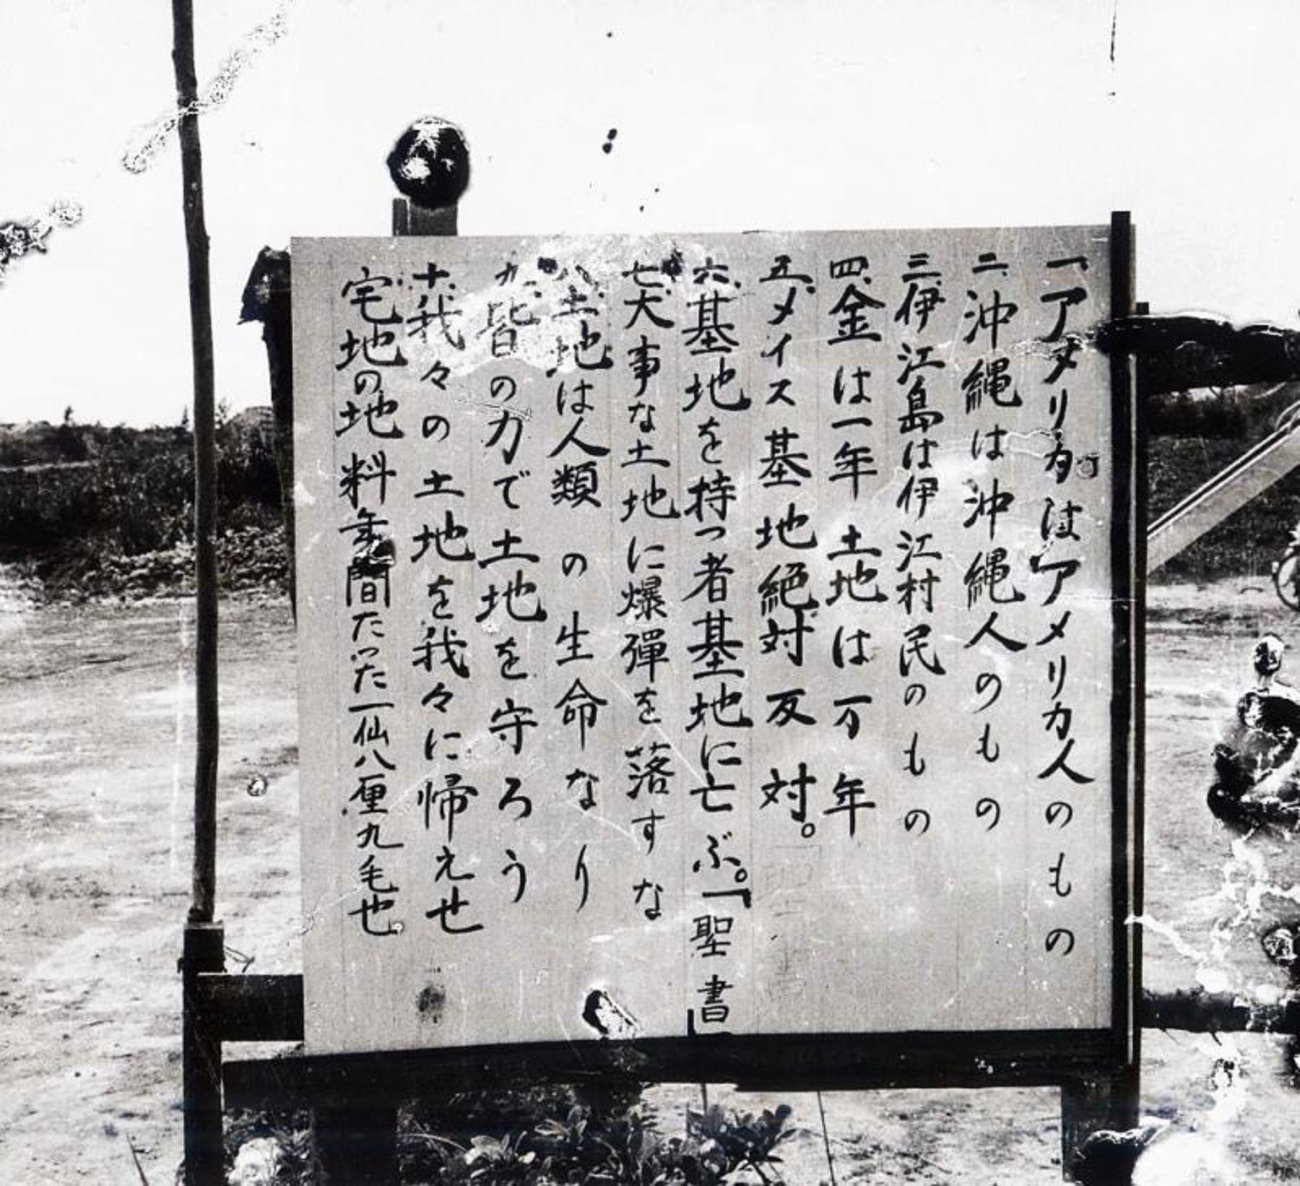 一、アメリカはアメリカ人のもの
二、沖縄は沖縄人のもの
三、伊江島は伊江村民のもの
四、金は一年 土地は万年
五、メイス基地絶対反対。
六、基地を持つ者基地に亡ぶ。「聖書」
七、大事な土地に爆弾を落すな
八、土地は人類の生命なり
九、皆の力で土地を守ろう
十、我々の土地を我々に帰えせ
宅地の地料年間たった一仙八厘九毛也